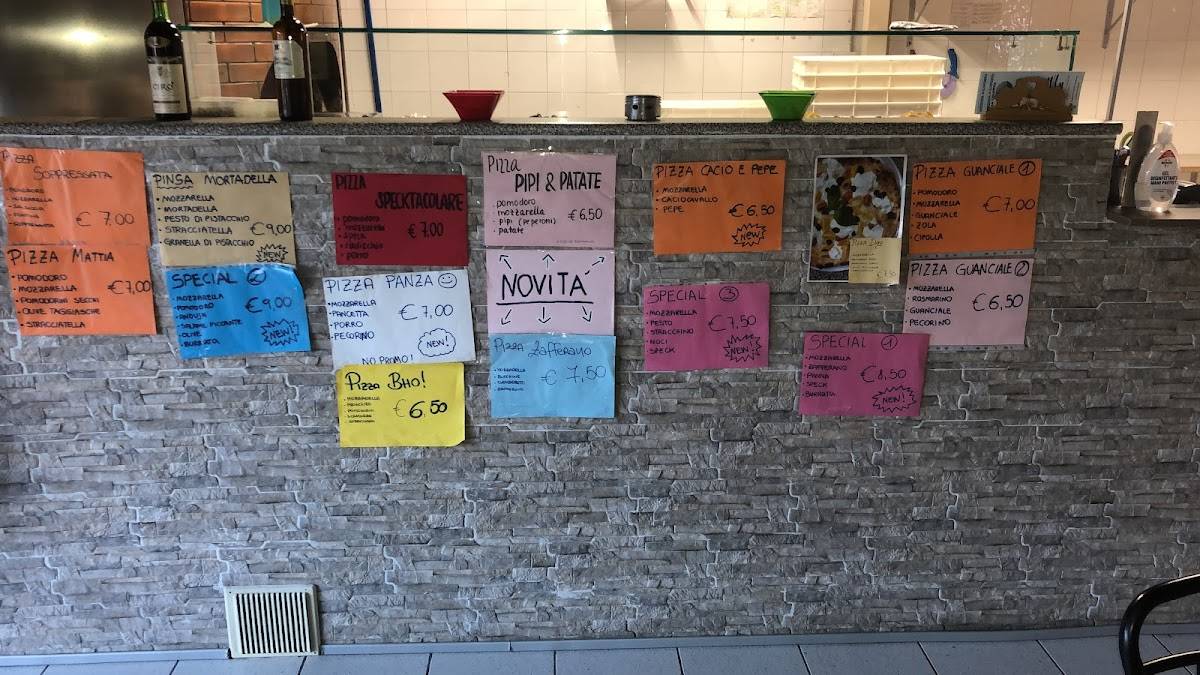 PIZZA
SOPPRESSATA
€ 7,00
PIZZA MATTIA
POMODORO
MOZZARELLA
POMODORINI SECCHI
OLIVE TAGGIASCHE
STRACCIATELLA
€ 7,00
PINSA MORTADELLA
MOZZARELLA
MORTADELLA
PESTO DI PISTACCHIO
STRACCIATELLA
GRANELLA DI PISTACCHIO
€ 9,00
NEW!
SPECIAL 2
MOZZARELLA
POMODORO
NDUJA
SALAME PICCANTE
OLIVE
BURRATA
€ 9,00
NEW!
PIZZA
SPECKTACOLARE
POMODORO
MOZZARELLA
€ 7,00
PIZZA PANZA
MOZZARELLA
PANCETTA
PORRO
PECORINO
€ 7,00
NEW!
NO PROMO!
PIZZA BHO!
€ 6,50
PIZZA
PIPI & PATATE
pomodoro
mozzarella
PIPI (peperoni)
patate
€ 6,50
NOVITÀ
PIZZA Zafferano
€ 7,50
PIZZA CACIO E PEPE
MOZZARELLA
CACIOCAVALLO
PEPE
€ 6,50
NEW
SPECIAL 3
MOZZARELLA
PESTO
STRACCHINO
NOCI
SPECK
€ 7,50
NEW!
SPECIAL 1
MOZZARELLA
ZAFFERANO
SPECK
BURRATA
€ 8,50
NEW!
PIZZA GUANCIALE 1
POMODORO
MOZZARELLA
GUANCIALE
ZOLA
CIPOLLA
€ 7,00
PIZZA GUANCIALE 2
MOZZARELLA
ROSMARINO
GUANCIALE
PECORINO
€ 6,50
GEL
DISINFETTANTE
MANI